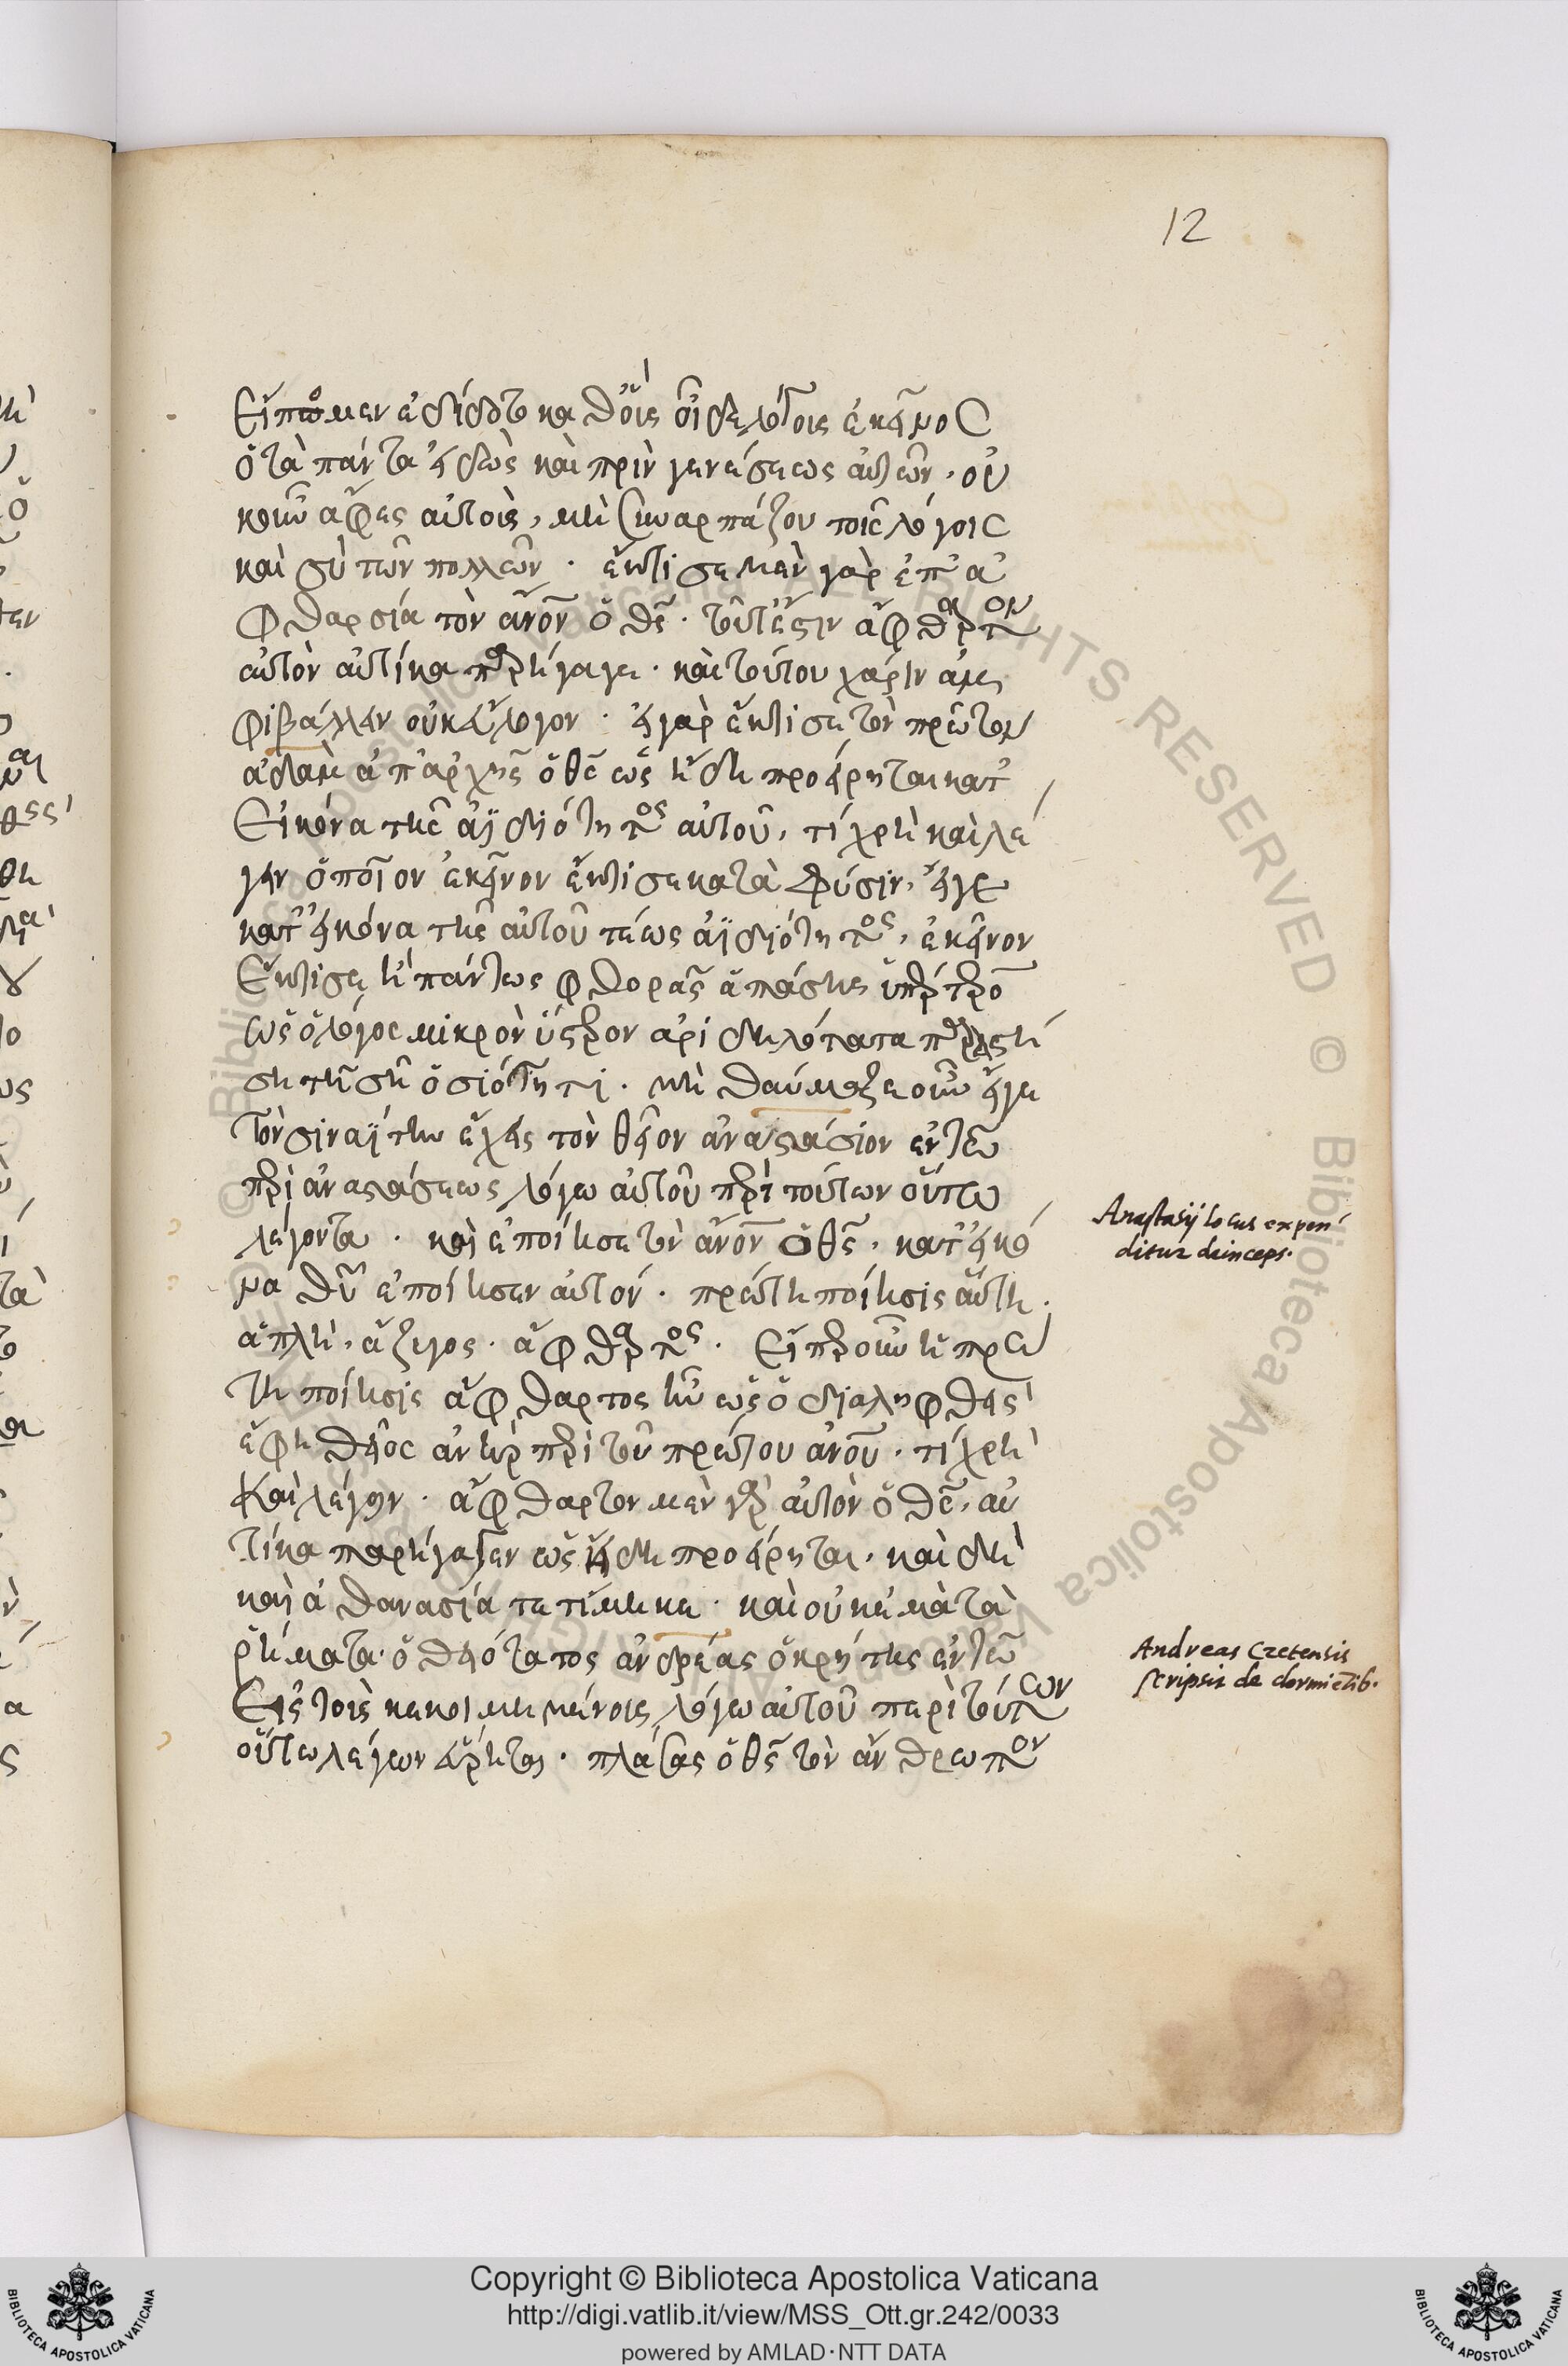 12
εἴπομεν ἐδίδοτο καθ' οἷς οἶδε λόγοις ἐκεῖνος
ὁ τὰ πάντα εἰδὼς καὶ πρὶν γενέσεως αὐτῶν, οὐ
κοῦν ἄφες αὐτοῖς, μὴ συναρπάζου τοῖς λόγοις
καὶ σὺ τῶν πολλῶν. ἔκτισε μὲν γὰρ ἐπ' ἀ
φθαρσία τὸν ἄνον ὁ θς. τουτέστιν ἄφθαρτον
αὐτὸν αὐτίκα παρήγαγε. καὶ τούτου χάριν ἀμ
φιβάλλειν οὐκ εὔλογον. εἰ γὰρ ἔκτισε τὸν πρῶτον
ἀδὰμ ἀπ' ἀρχῆς ὁ θς ὡς ἤδη προείρηται κατ'
εἰκόνα τῆς ἀϊδιότητος αὐτοῦ, τί χρὴ καὶ λέ
γειν ὁποῖον ἐκεῖνον ἔκτισε κατὰ φύσιν, εἴγε
κατ' εἰκόνα τῆς αὐτοῦ τέως ἀϊδιότητος, ἐκεῖνον
ἔκτισε, ἢ πάντως φθορᾶς ἁπάσης ὑπέρτερον
ὡς ὁ λόγος μικρὸν ὕστερον ἀριδηλότατα παραστή
ση τῇ σῇ ὁσιότητι. μὴ θαύμαζε οὖν εἴγε
τὸν σιναΐτην ἔχεις τὸν θεῖον ἀναστάσιον ἐν τῶ
περὶ ἀναστάσεως λόγω αὐτοῦ περὶ τούτων οὕτω
λέγοντα. καὶ ἐποίησε τὸν ἄνον ὁ θς, κατ' εἰκό
να θυ ἐποίησεν αὐτόν. πρώτη ποίησις αὕτη.
ἁπλῆ, ἄζυγος. ἄφθαρτος. εἴπερ οὖν ἡ πρώ
τη ποίησις ἄφθαρτος ἦν ὡς ὁ διαληφθεὶς
ἔφη θεῖος ἀνὴρ περὶ τοῦ πρώτου ανου. τί χρὴ
καὶ λέγειν. ἄφθαρτον μὲν γὰρ αὐτὸν ὁ θς, αὐ
τίκα παρήγαγεν ὡς ἤδη προείρηται, καὶ δὴ
καὶ ἀθανασία τετίμηκε. καὶ οὐκ ἐμὰ τὰ
ῥήματα. ὁ θειότατος ἀνδρέας ὁ κρήτης ἐν τῶ
εἰς τοὺς κεκοιμημένους λόγω αὐτοῦ περὶ τούτων
οὕτω λέγων εὕρηται. πλάσας ὁ θς τὸν ἄνθρωπον
Anastasij locus expen
ditur deinceps.
Andreas Cretensis
scripsit de dormientib.
Copyright © Biblioteca Apostolica Vaticana
http://digi.vatlib.it/view/MSS_Ott.gr.242/0033
powered by AMLAD·NTT DATA
BIBLIOTECA APOSTOLICA VATICANA
BIBLIOTECA APOSTOLICA VATICANA